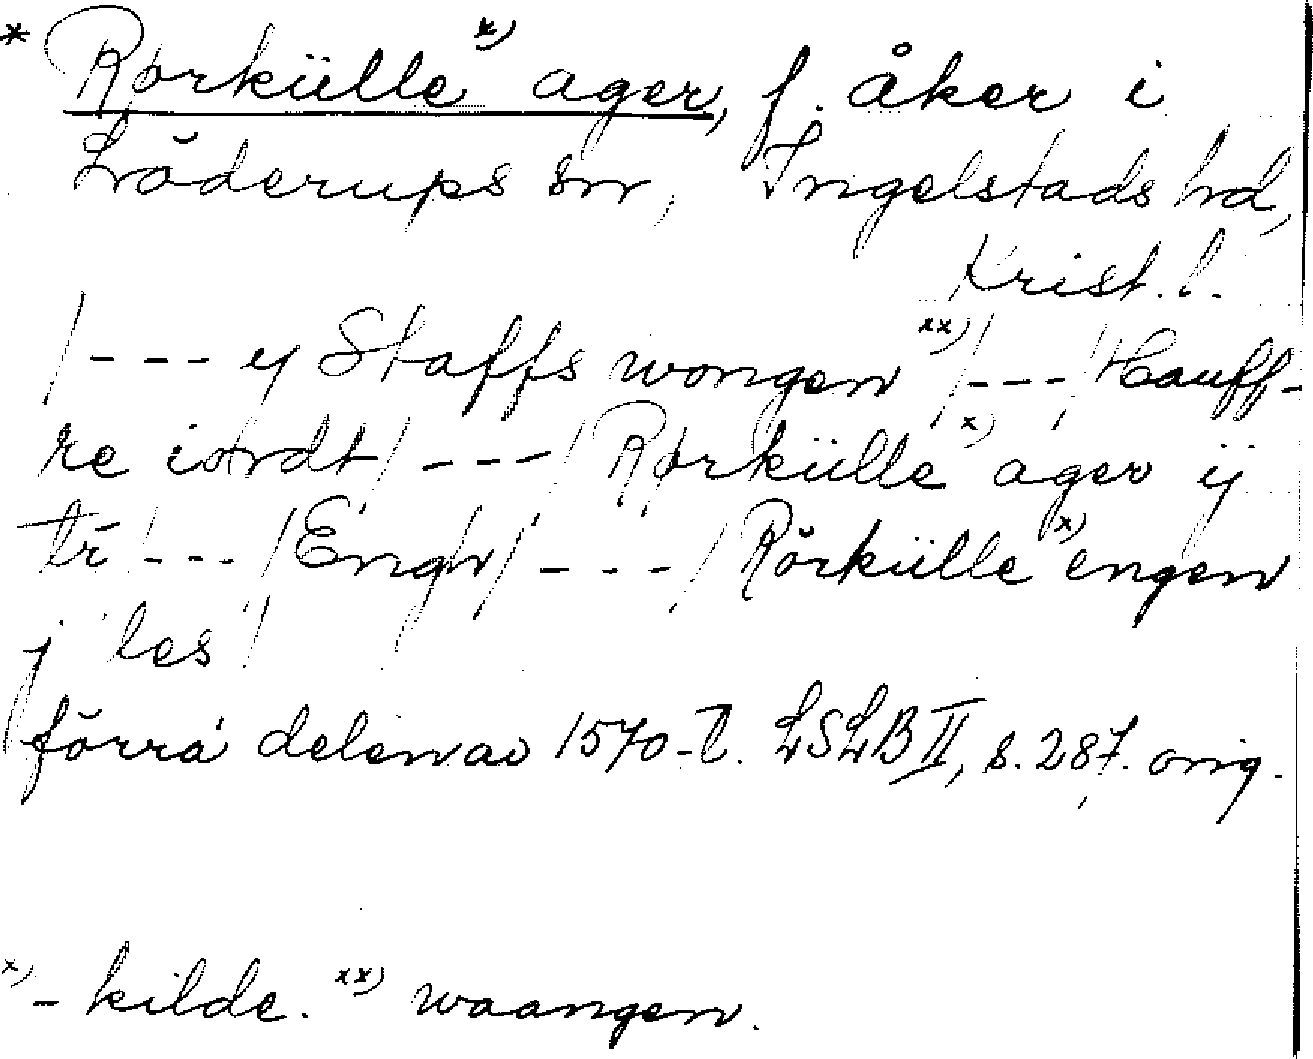 * Rørkülle x) ager, f. åker i
Löderups sn, Ingelstads hd,
Krist. l.
/ - - - ij Staffs wongen xx) / - - - / Hauff-
re iordt / - - - / Rørkülle x) ager ij
tr̃ / - - - / Engh / - - - / Rörkülle x) engen
j les /
förra delen av 1570-t. LSLB II, s. 287. orig.
x) - kilde. xx) waangen.